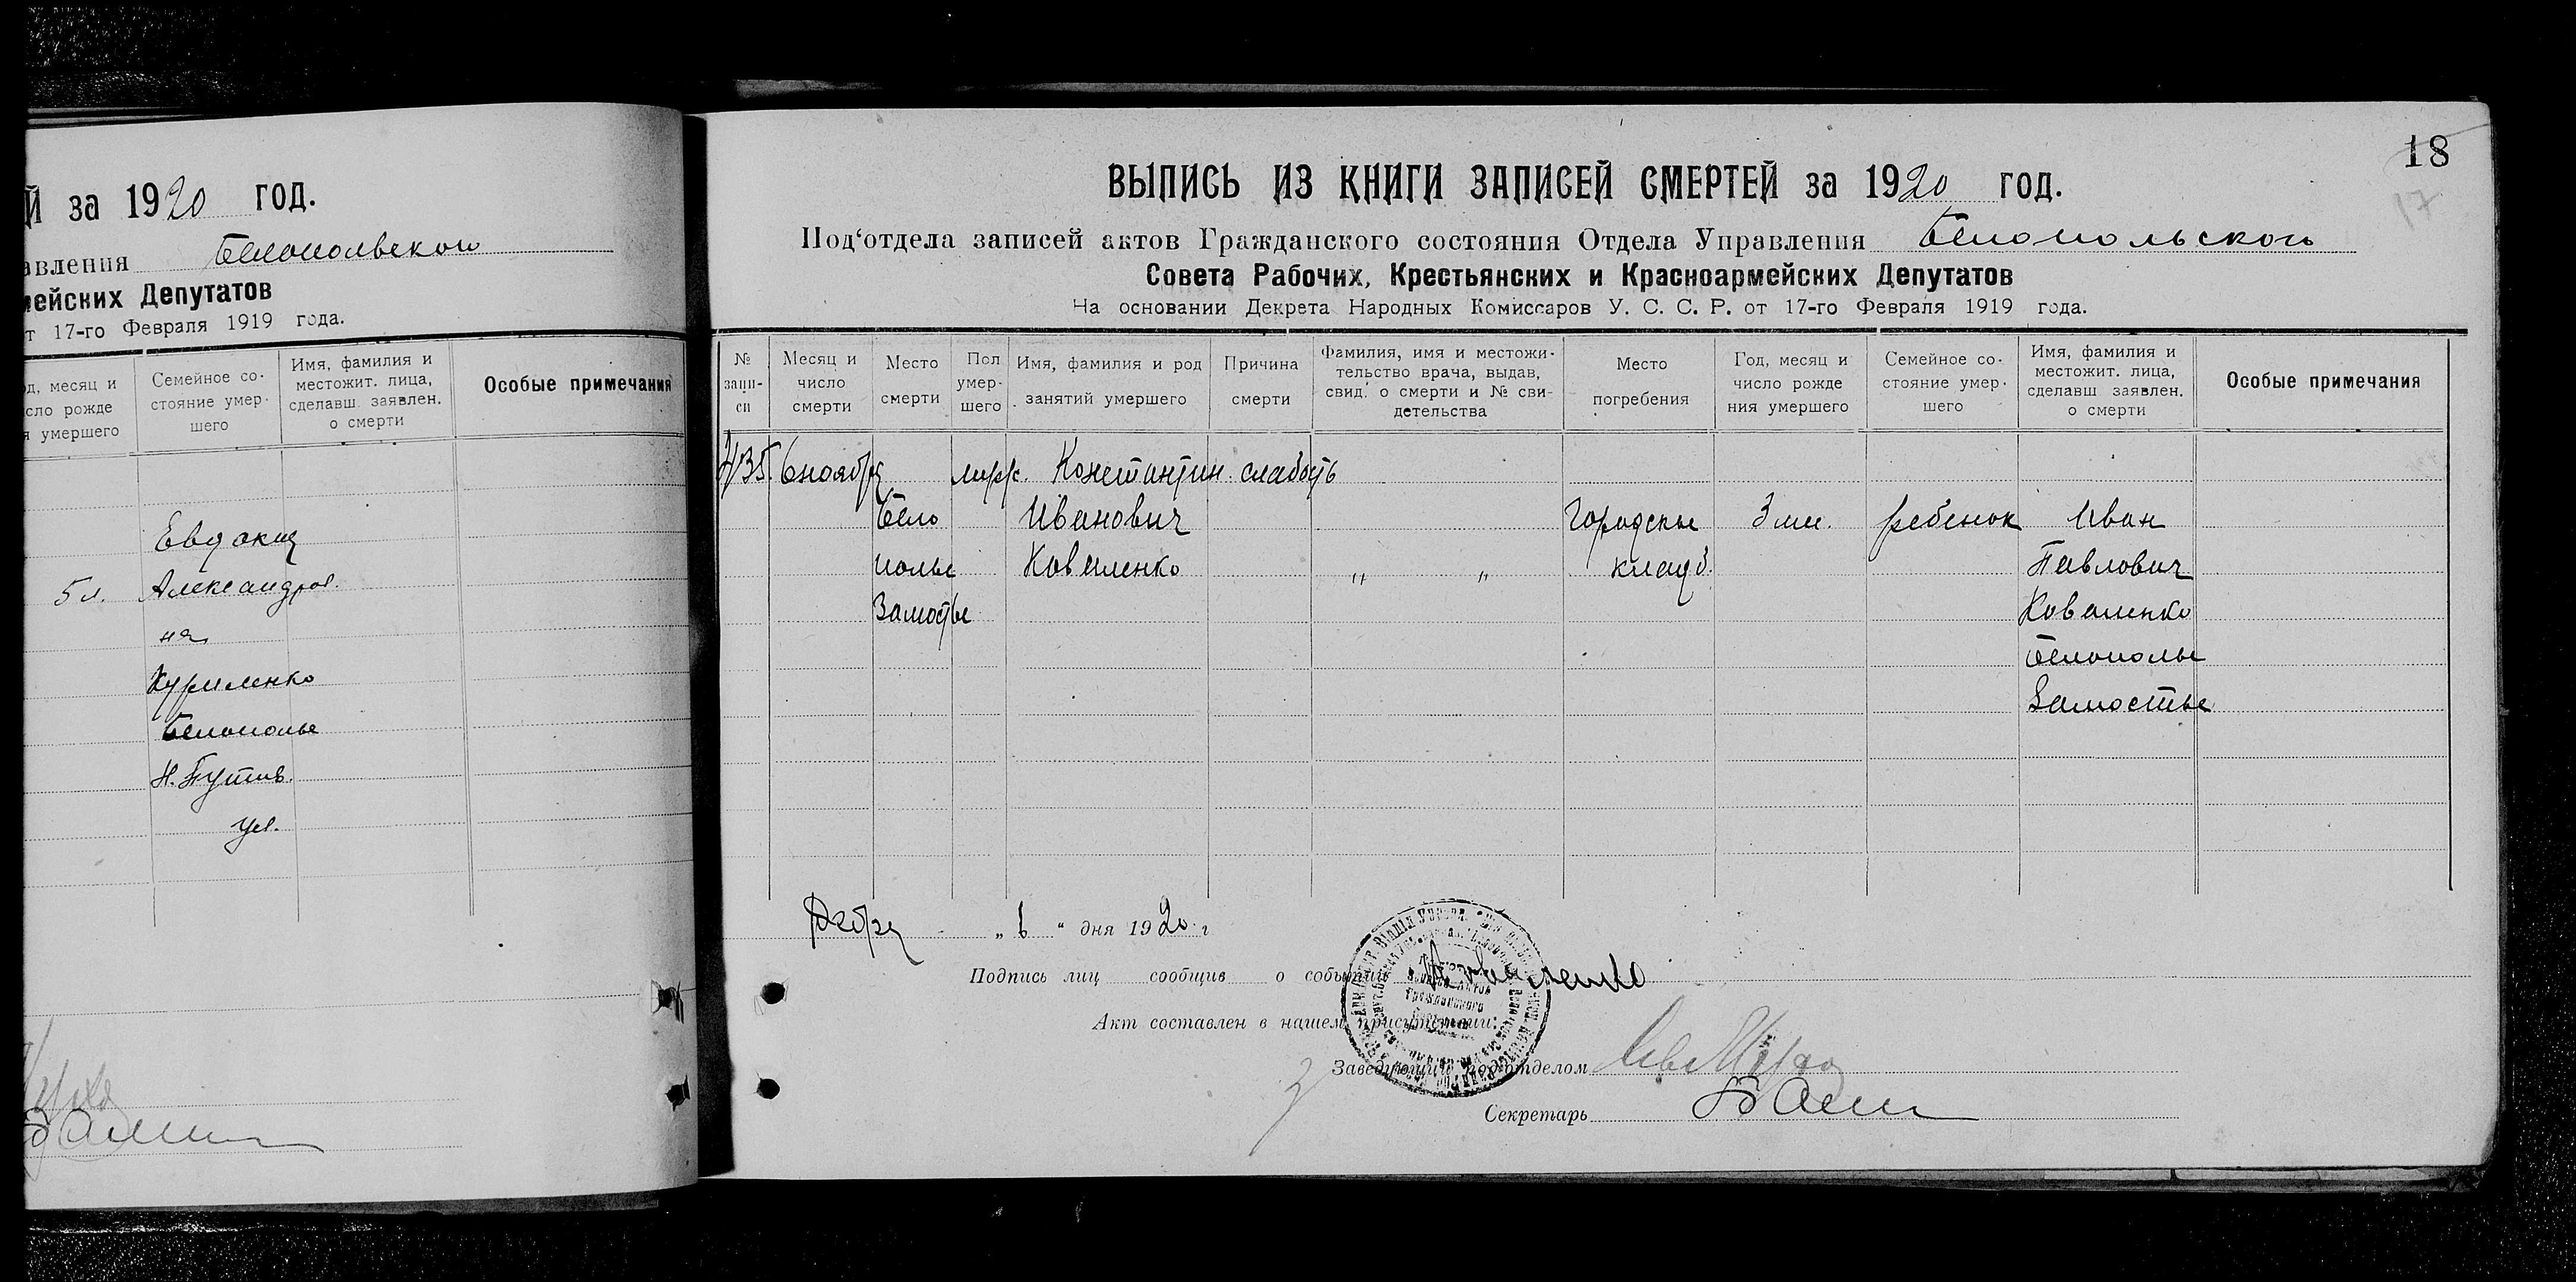 Й за 1920 год.
авления Белопольского
мейских Депутатов
т 17-го Февраля 1919 года.
од, месяц и
сло рожде
я умершего
Семейное со-
стояние умер-
шего
Имя, фамилия и
местожит. лица,
сделавш. заявлен.
о смерти
Особые примечания
Евдокия
5 л. Александров.
на
Куриленко
Белополье
Н. Путив.
ул.
18
17
ВЫПИСЬ ИЗ КНИГИ ЗАПИСЕЙ СМЕРТЕЙ за 1920 год.
Под'отдела записей актов Гражданского состояния Отдела Управления Белопольского
Совета Рабочих, Крестьянских и Красноармейских Депутатов
На основании Декрета Народных Комиссаров У. С. С. Р. от 17-го Февраля 1919 года.
№
запи-
си
Месяц и
число
смерти
Место
смерти
Пол
умер-
шего
Имя, фамилия и род
занятий умершего
Причина
смерти
Фамилия, имя и местожи-
тельство врача, выдав.
свид. о смерти и № сви-
детельства
Место
погребения
Год, месяц и
число рожде
ния умершего
Семейное со-
стояние умер-
шего
Имя, фамилия и
местожит. лица,
сделавш. заявлен.
о смерти
Особые примечания
435. 6 ноября муж. Константин слабость
Бело Иванович Городское 3 ме. ребенок Иван
полье Коваленко " " кладб. Павлович
Замостье Коваленко
Белополье
Замостье
"6" дня 1920 г
Подпись лиц сообщив о событии Коваленко
Акт составлен в нашем присутствии:
Заведующий под'отделом
Секретарь